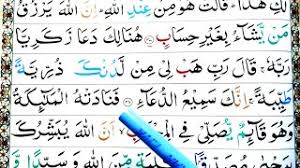 لَكِ هٰذَا قَالَتْ هُوَ مِنْ عِنْدِ اللّٰهِ اِنَّ اللّٰهَ يَرْزُقُ
مَنْ يَّشَآءُ بِغَيْرِ حِسَابٍ هُنَالِكَ دَعَا زَكَرِيَّا
رَبَّهٗ قَالَ رَبِّ هَبْ لِيْ مِنْ لَّدُنْكَ ذُرِّيَّةً
طَيِّبَةً اِنَّكَ سَمِيْعُ الدُّعَآءِ فَنَادَتْهُ الْمَلٰٓئِكَةُ
وَهُوَ قَآئِمٌ يُّصَلِّيْ فِي اَنَّ اللّٰهَ يُبَشِّرُكَ
مِّنَ اللّٰهِ وَسَيِّدًا وَّ